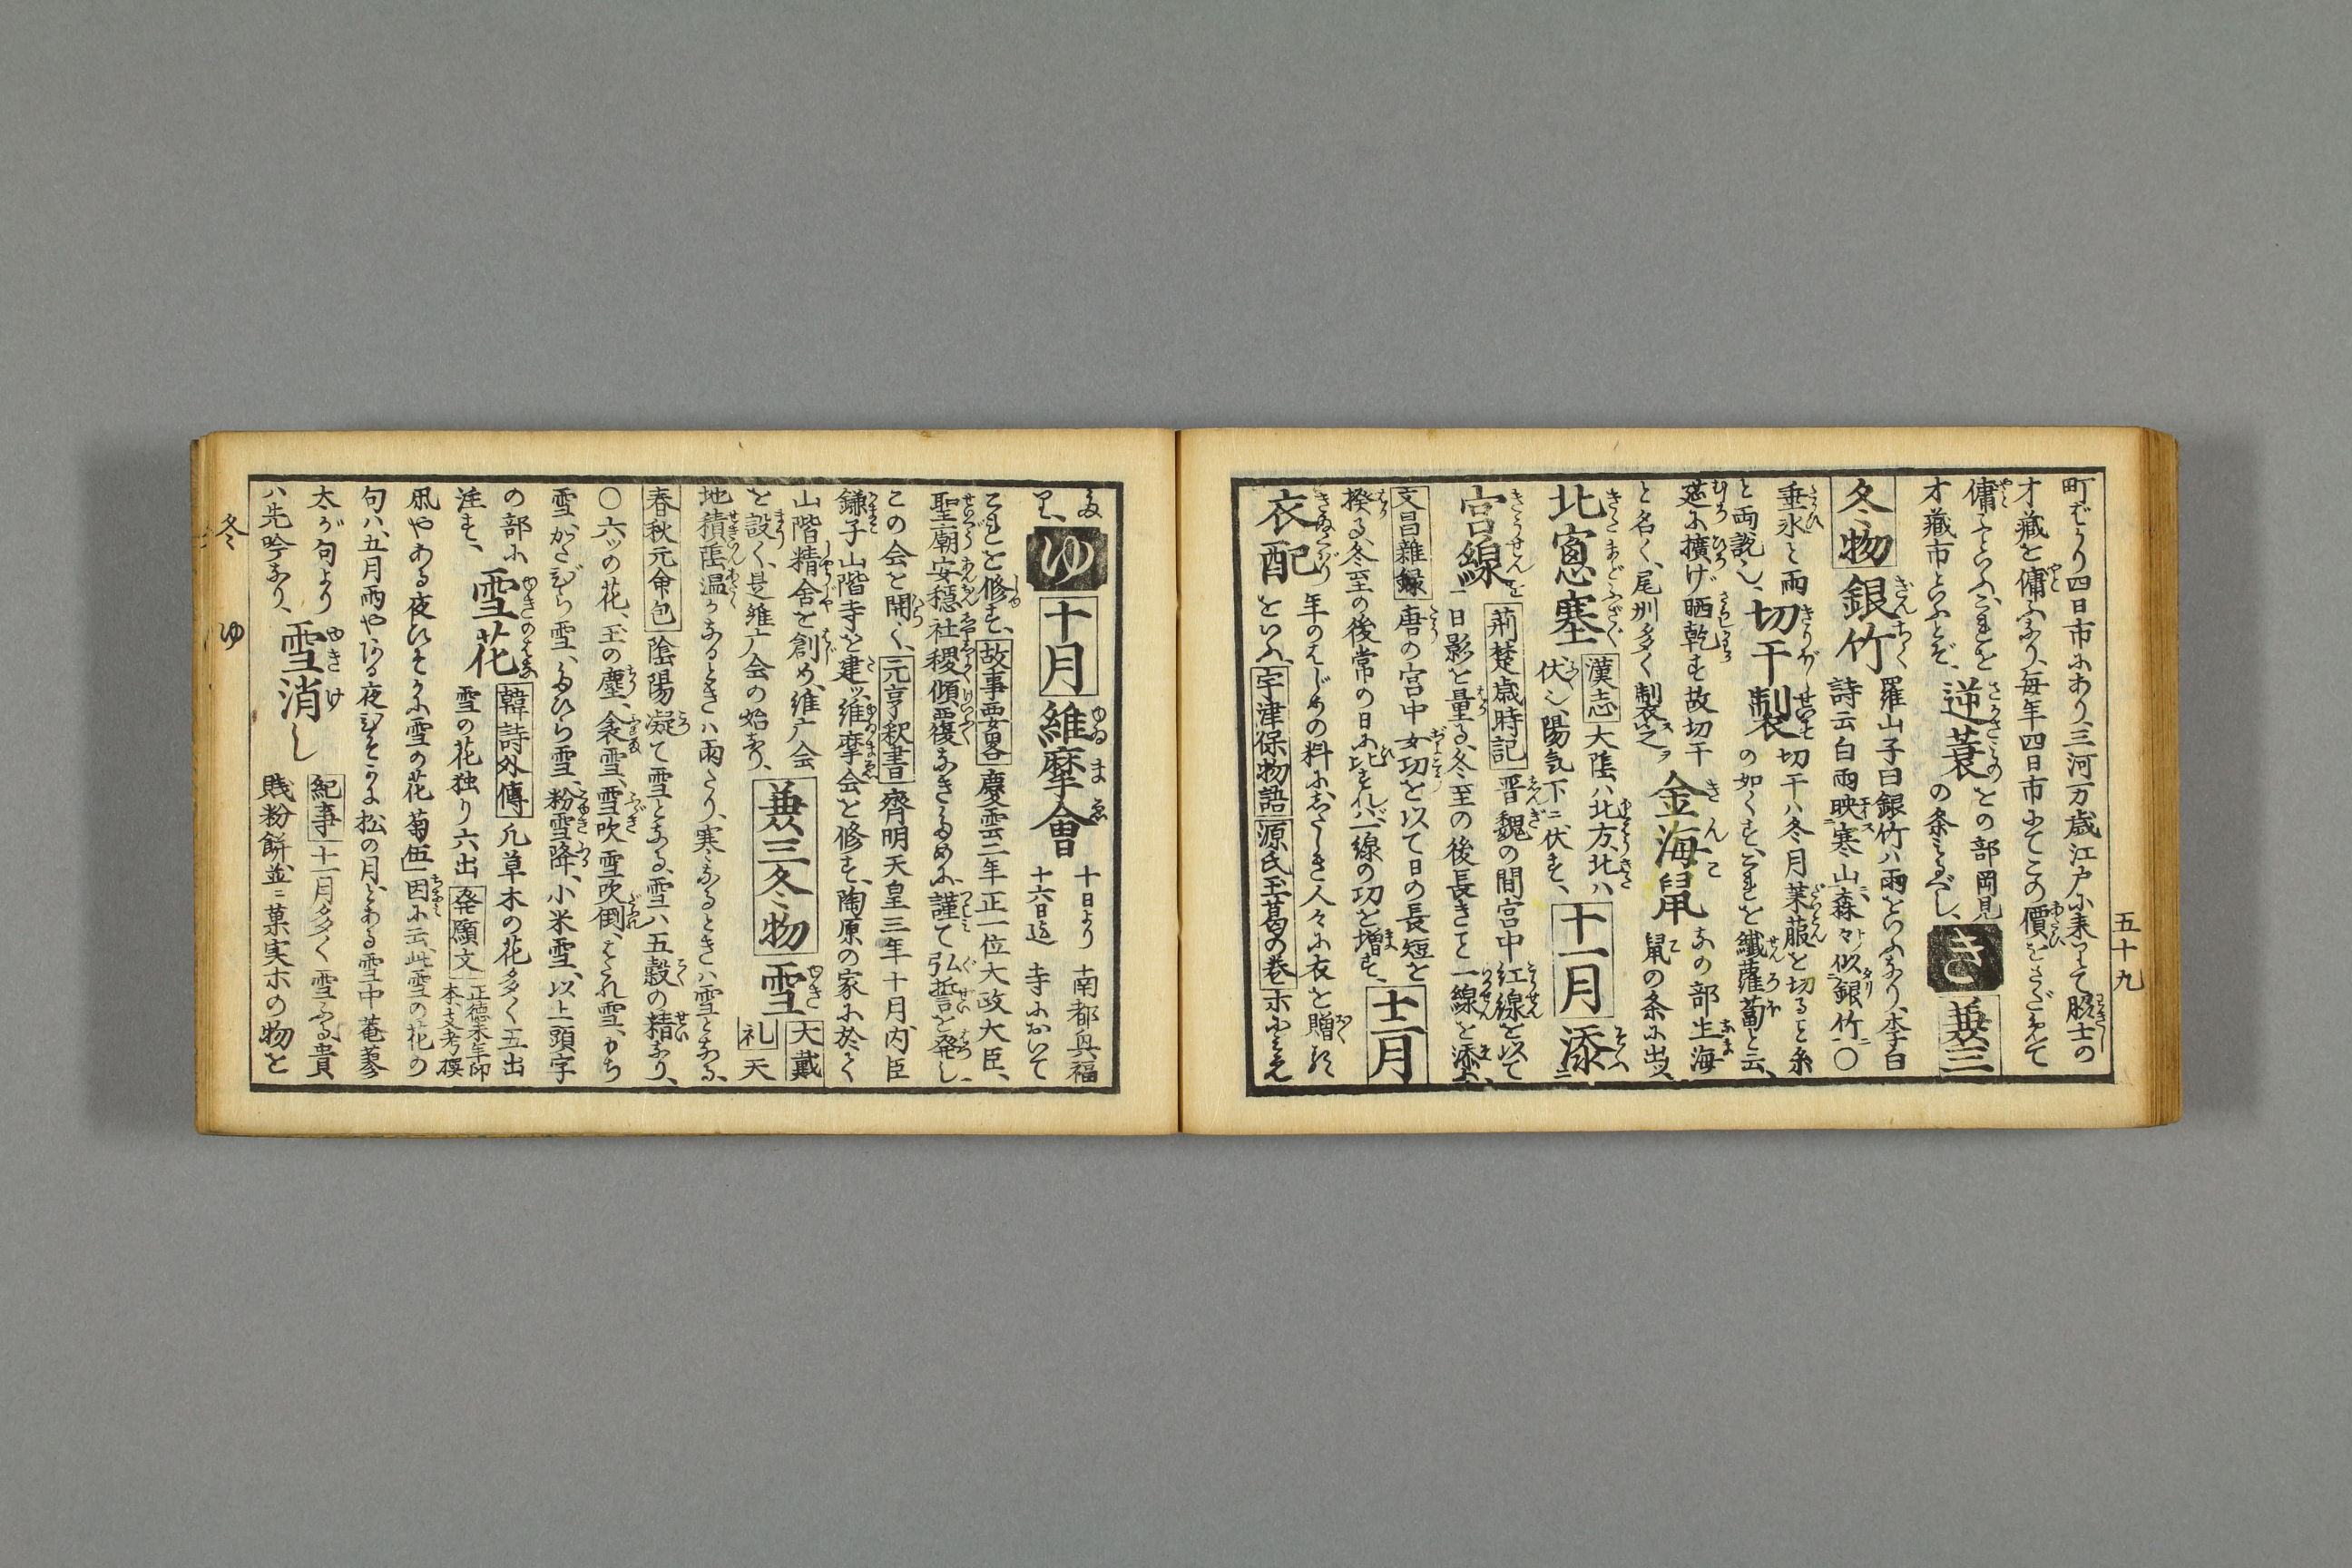 五十九
町ばかり四日市にあり、三河万歳江戸に来りて脇士の
才蔵を傭ふなり、毎年四日市にてこの價をさだめて
傭ふといふ、これを
才藏市といふとぞ、
逆蓑 との部岡見
の条にみるべし、
き 兼三
冬物 銀竹 羅山子曰銀竹ハ雨をいふなり、李白
詩云白雨映寒山森々似銀竹〇
垂氷と雨
と両説也、
切干製 切干ハ冬月莱菔を切ると糸
の如くす、これを繊蘿蔔と云、
莚に擴げ晒乾す故切干
と名く、尾州多く製之
金海鼠 なの部生海
鼠の条に出ス
北窓塞 漢志 大陰ハ北方、北ハ
伏也、陽気下ニ伏す、
十一月 添
宮線 荊楚歳時記 晋魏の間宮中紅線を以て
日影を量る、冬至の後長きこと一線を添ふ、
文昌雑録 唐の宮中女功を以て日の長短を
揆る、冬至の後常の日に比すれバ一線の功を増す、
十二月
衣配 年のはじめの料にしたしき人々に衣を贈る
をいふ、宇津保物語 源氏玉葛の巻 ホにみえ
たり、
ゆ 十月 維摩會 十日より
十六日迄
南都興福
寺において
これを修す、故事要畧 慶雲二年正一位大政大臣、
聖廟安穏社稷傾覆なきために、謹て弘誓を発し、
この会を開く、元亨釈書 齊明天皇三年十月、内臣
鎌子山階寺を建ッ、維摩会を修す、陶原の家に於く
山階精舎を創め、維广会
を設く、是維广会の始なり、
兼三冬物 雪 大戴
礼 天
地積陰温かなるときハ雨たり、寒なるときハ雪となる、
春秋元命包 陰陽凝て雪となる、雪ハ五穀の精なり、
〇六ッの花、玉の塵、衾雪、雪吹雪吹倒、はだれ雪、かち
雪、かたびら雪、たひら雪、粉雪降、小米雪、以上頭字
の部に
注す、
雪花 韓詩外傳 凡草木の花多く五出
雪の花独り六出 発願文 正徳未年師
本、支考撰
凩やある夜ひそかに雪の花 菊伍 因に云、此雪の花の
句ハ、五月雨やある夜ひそかに松の月、とある雪中菴蓼
太が句より
ハ先吟なり、
雪消し 紀事 十一月多く雪ふる、貴
賎粉餅並ニ菓実ホの物を
冬 ゆ